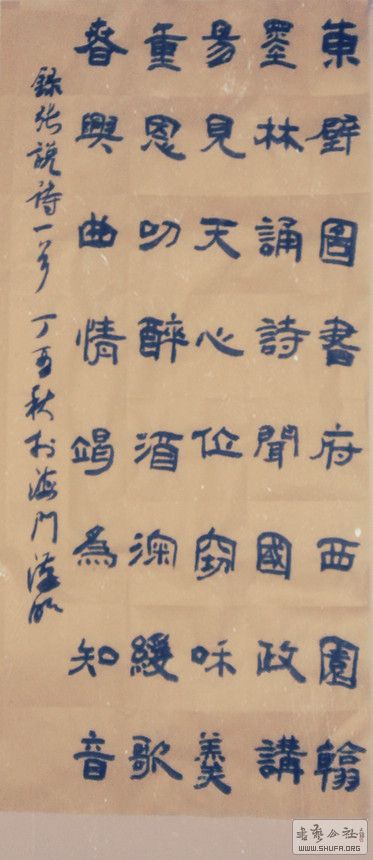 東壁圖書府西園翰
墨林誦詩聞國政講
易見天心位竊和羹
重恩叨醉酒深緩歌
春興曲情竭為知音
錄張說詩一首 丁 秋於海門
書藝公社
WWW.SHUFA.ORG